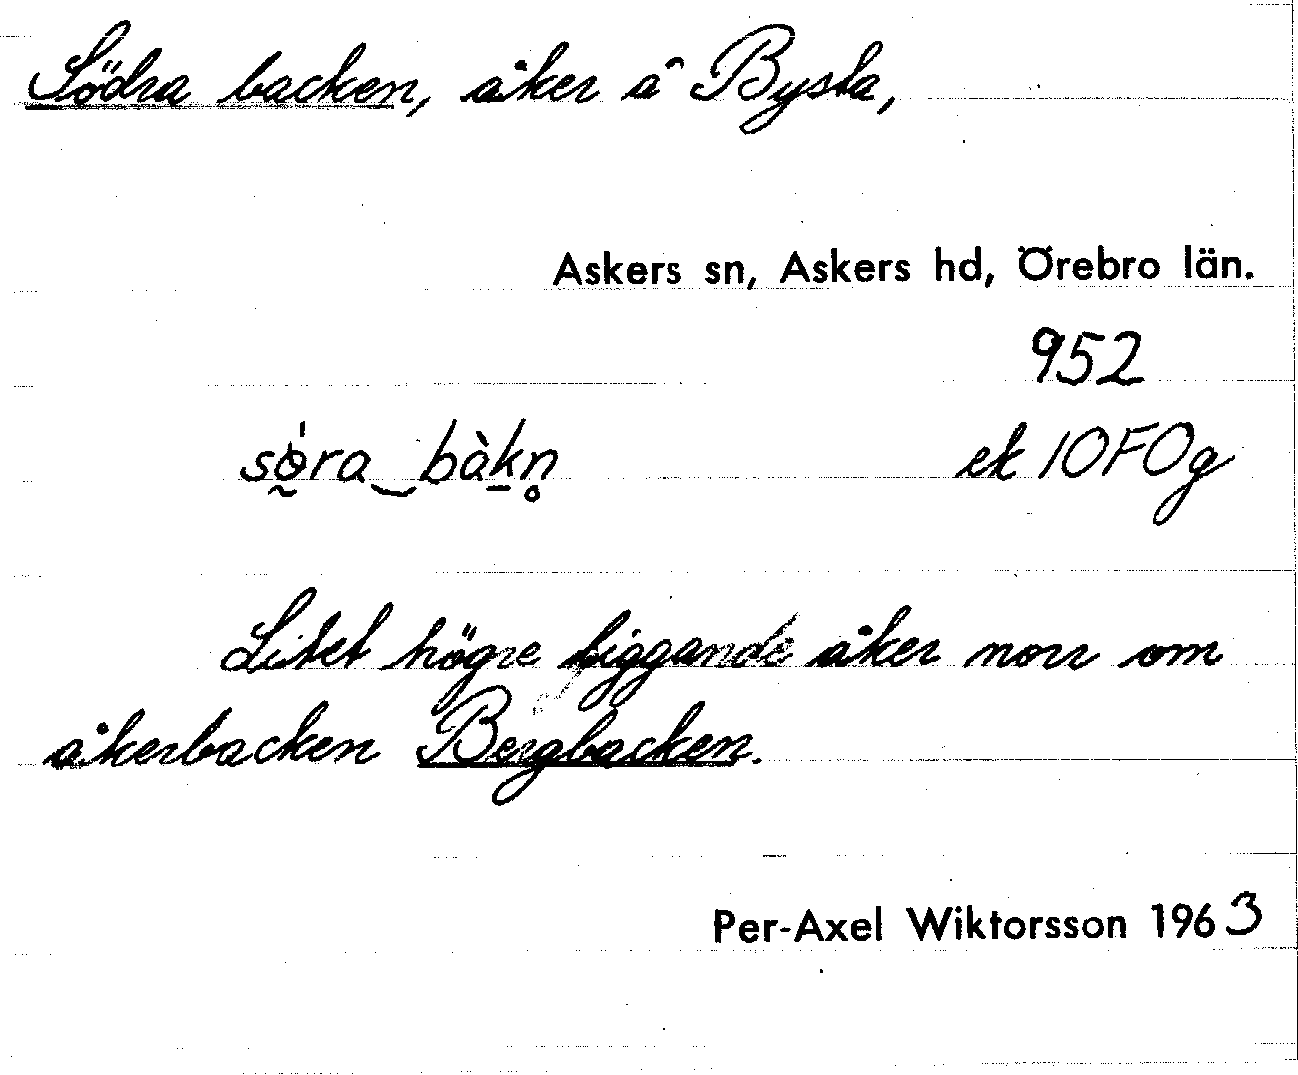 Södra backen, åker å Bysta,
Askers sn, Askers hd, Örebro län.
952
sǿ̰ra‿bàk̠n̥ ek 10F0g
Litet högre liggande åker norr om
åkerbacken Bergbacken.
Per-Axel Wiktorsson 1963